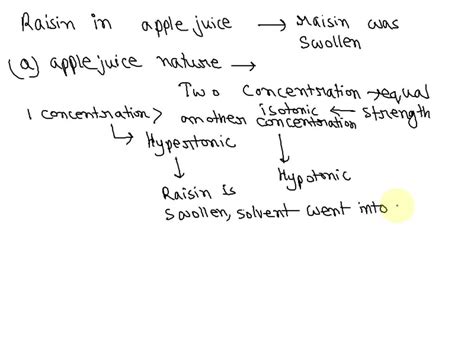 Raisin in apple juice → Raisin was
swollen
(a) apple juice nature →
Two Concentration → equal
isotonic ← strength
1 concentration > another concentration
↳ Hypertonic
Hypotonic
Raisin is
swollen, solvent went into